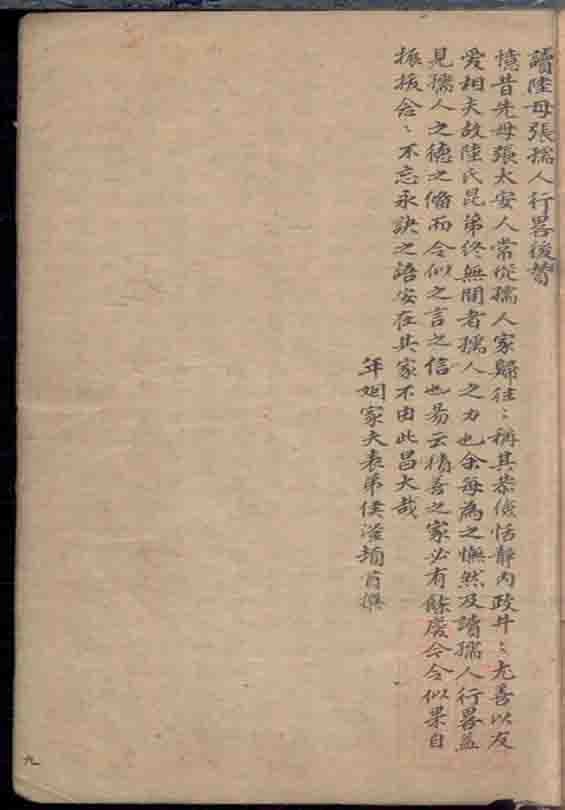 讀陸母張孺人行畧後贊
憶昔先母張太安人常從孺人家歸往〻稱其恭儉恬靜內政井〻尤善以友
愛相夫故陸氏昆弟終無間者孺人之力也余每為之憮然及讀孺人行畧益
見孺人之德之備而令似之言之信也易云積善之家必有餘慶今令似果自
振拔念〻不忘永訣之語安在其家不由此昌大哉
年姻家夫表弟侯 頓首撰
九